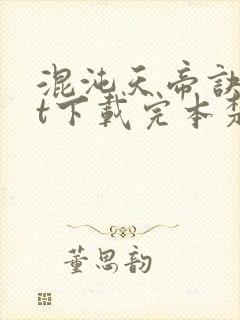 混沌天帝訣
t下載完本
董思韵